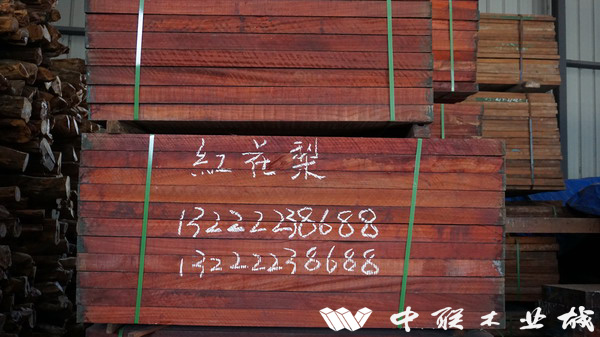 紅花梨
13222238688
13222238688
中联木业城